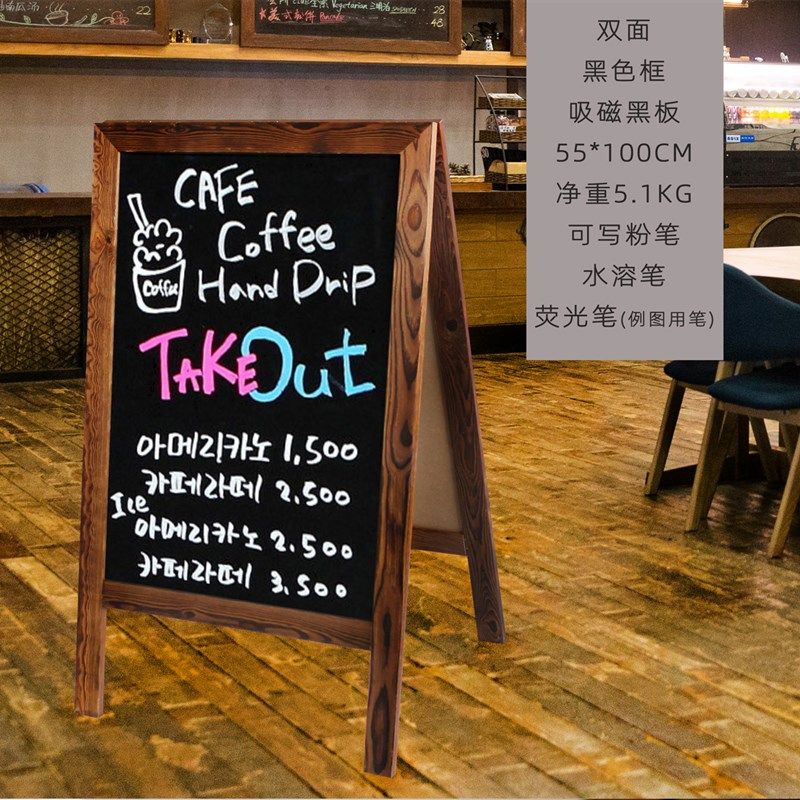 22
Vegetarian 三明治 SANDWICH 28
Pancake 48
双面
黑色框
吸磁黑板
55*100CM
净重5.1KG
可写粉笔
水溶笔
荧光笔(例图用笔)
CAFE
Coffee
Hand Drip
Coffee
TAKE Out
아메리카노 1,500
카페라떼 2.500
Ice
아메리카노 2.500
카페라떼 3,500